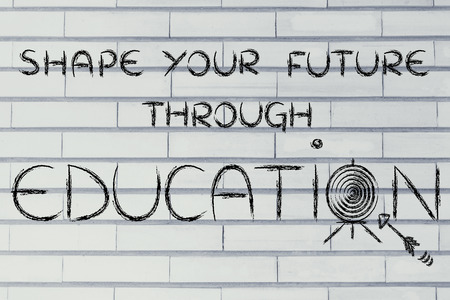 SHAPE YOUR FUTURE
THROUGH
EDUCATION